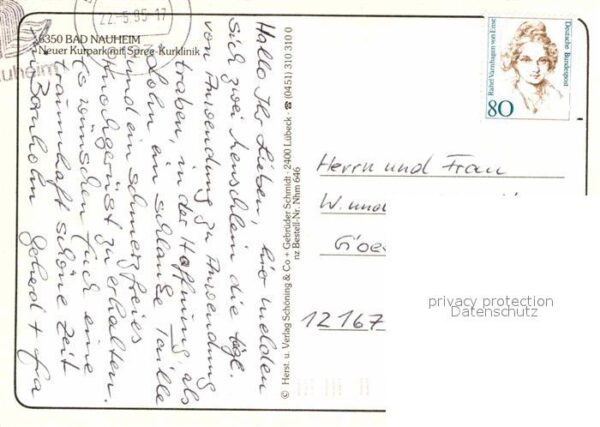 22.-5.95-17
6350 BAD NAUHEIM
Neuer Kurpark mit Spree-Kurklinik
auheim
Hallo Ihr Lieben, hier melden
sich zwei Menschlein die tägl.
von Anwendung zu Anwendung
traben, in der Hoffnung als
Lohn eine schlanke Taille
und ein schmerzfreies
Knochgerüst zu erhalten.
Es wünschen Euch eine
traumhaft schöne Zeit
Bornholm Gerhard +
© Herst. u. Verlag Schöning & Co + Gebrüder Schmidt · 2400 Lübeck · ☎ (0451) 310 310 0
nz Bestell-Nr. Nhm 646
Deutsche Bundespost
Rahel Varnhagen von Ense
80
Herrn und Frau
W. und
12167
privacy protection
Datenschutz